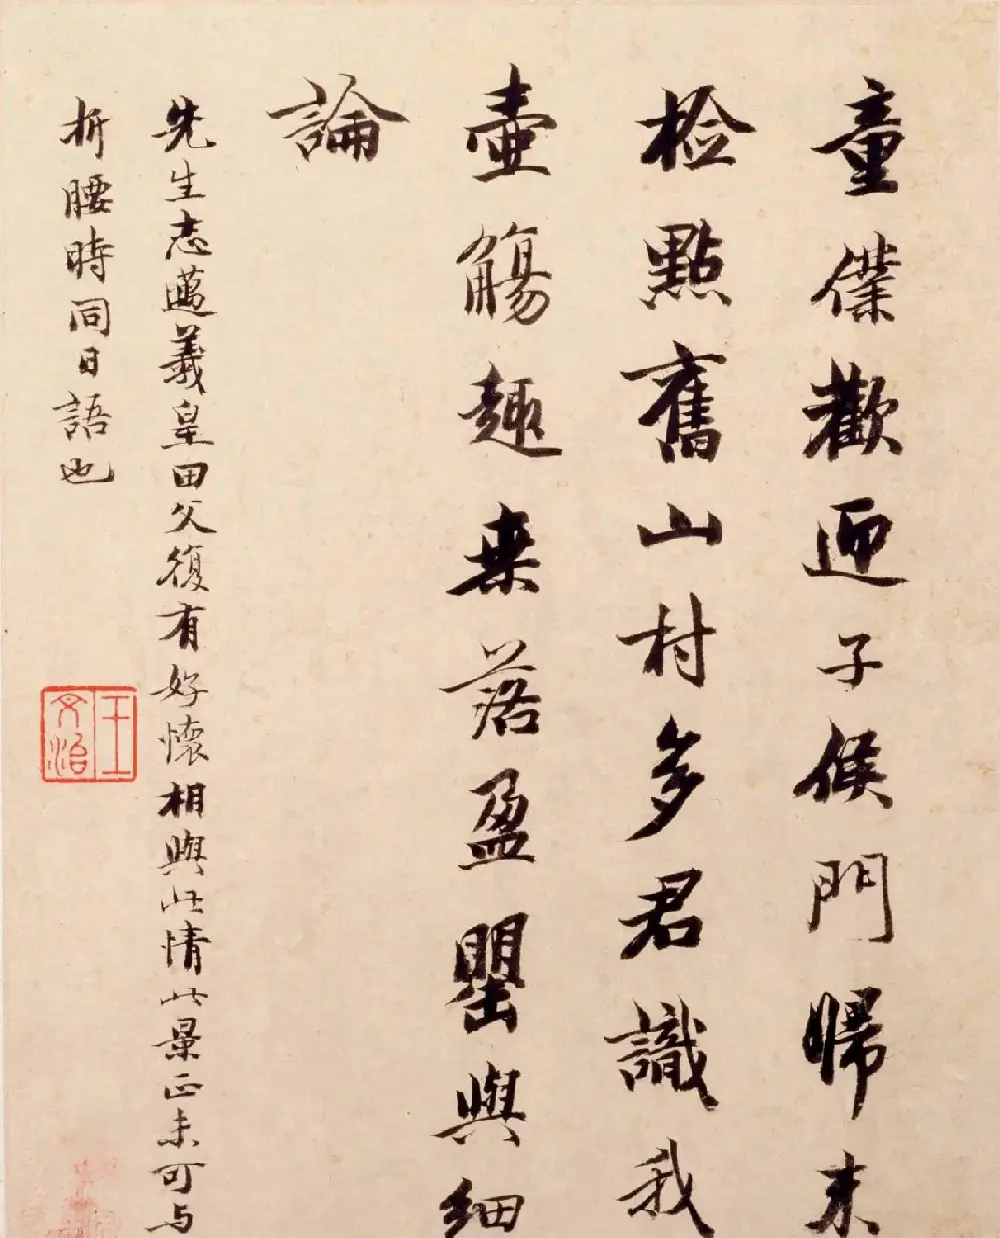 童僕歡迎子候門歸来
檢點舊山村多君識我
壷觴趣来落盈罌與細
論
先生志邁羲皇田父復有好懷相與此情此景正未可与
折腰時同日語也
王文治